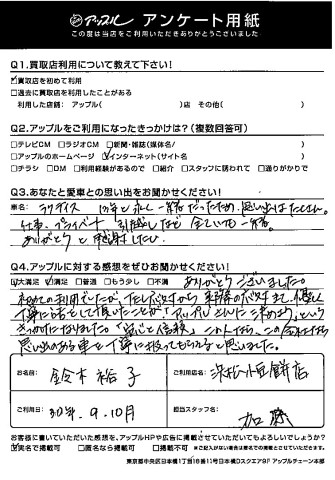 アップル アンケート用紙
この度は当店をご利用いただきありがとうございました
Q1.買取店利用について教えて下さい!
☑買取店を初めて利用
□過去に買取店を利用したことがある
利用した店舗: アップル( )店 その他( )
Q2.アップルをご利用になったきっかけは?(複数回答可)
□テレビCM □ラジオCM □新聞・雑誌(媒体名/ )
□アップルのホームページ ☑インターネット(サイト名 )
□チラシ □DM □利用経験があるので □紹介 □スタッフに誘われて □通りがかりで
Q3.あなたと愛車との思い出をお聞かせください!
車名: ラクティス 13年と永く一緒だったため、思い出はたくさん。
仕事、プライベート 引越しなど 全ていつも一緒。
ありがとうと感謝したい
Q4.アップルに対する感想をぜひお聞かせください!
☑大満足 ☑満足 □普通 □もう少し □不満 ありがとうございました。
初めての利用でしたが、
丁寧に話をして頂いたことが「アップルさんに決めよう」という
きっかけになりました。
思い出のある車を丁寧に扱ってもらえると思いました。
お名前 鈴木裕子
ご利用店名: 浜松小豆餅店
ご利用日: 30年.9.10月
担当スタッフ名: 加藤
お客様に書いていただいた感想を、アップルHPや広告に掲載させていただいてもよろしいでしょうか?
☑実名で掲載可 □匿名なら掲載可 □掲載不可 ※ご記入がない場合は匿名での掲載とさせていただきます。
東京都中央区日本橋1丁目19番11号日本橋Dスクエア8F アップルチェーン本部